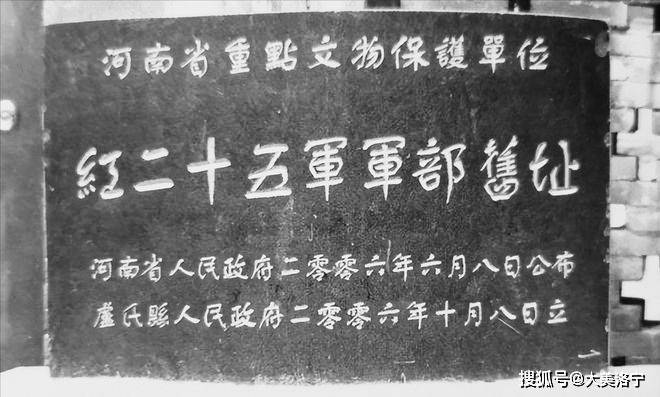 河南省重點文物保護單位
紅二十五軍軍部舊址
河南省人民政府二零零六年六月八日公布
盧氏縣人民政府二零零六年十月八日立
搜狐号@大美洛宁